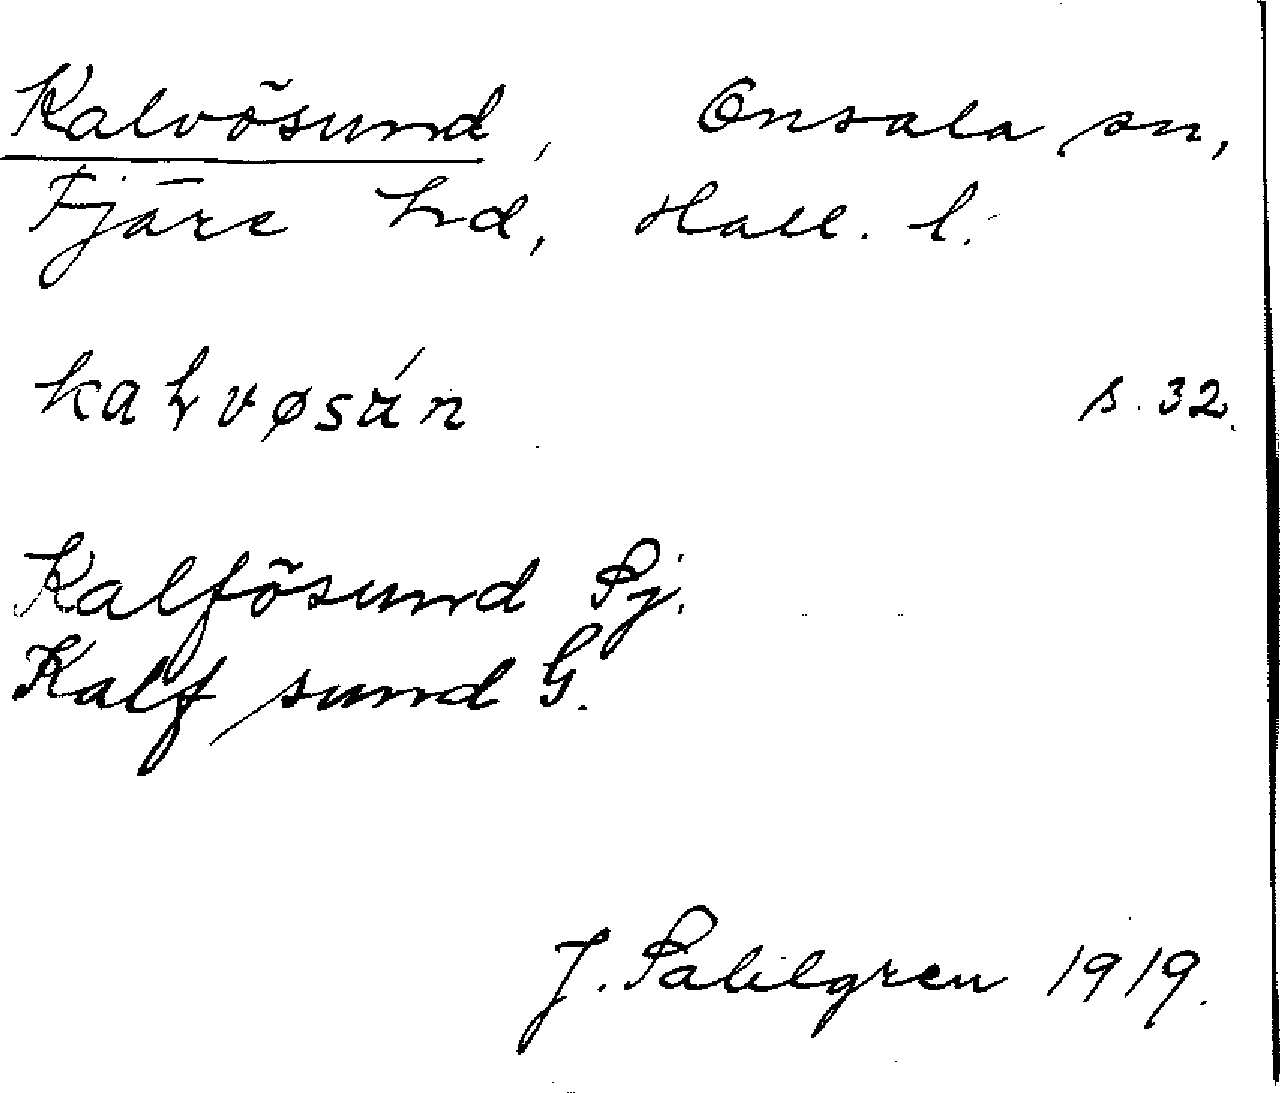 Kalvösund, Onsala sn,
Fjäre hd, Hall. l.
s. 32.
Kalfösund Pj.
Kalfsund G.
J. Palilgren 1919.